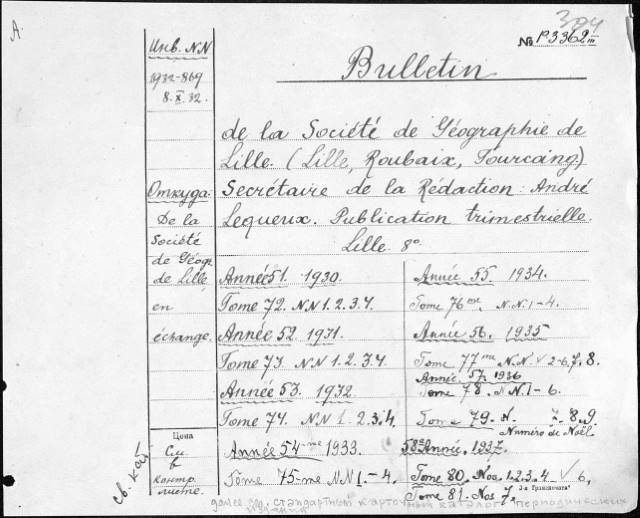 A.
304
№ Р3362 III
Инв. NN
1932-869
8.X.32.
Bulletin
de la Société de Géographie de
Lille. (Lille, Roubaix, Tourcoing.)
Secrétaire de la Rédaction: André
Lequeux. Publication trimestrielle.
Lille. 8°.
Откуда:
De la
Société
de Géogr.
de Lille,
en
échange.
Année 51. 1930.
Tome 72. NN 1. 2. 3. 4.
Année 52. 1931.
Tome 73. NN 1. 2. 3. 4
Année 53. 1932
Tome 74. NN 1. 2. 3. 4.
Année 54-me 1933.
Tome 75-me NN 1.-4.
Année 55. 1934.
Tome 76 N.N. 1-4.
Année 56. 1935
Tome 77 me N.N. V 2-6, 7, 8.
Année 57. 1936
Tome 78. NN 1-6.
Tome 79. N. 7. 8. 9
Numéro de Noël
58me Année, 1937.
Tome 80. Nos. 1. 2. 3. 4 V 6,
Tome 81. Nos 7.
Цена
См.
в
контр.
листе.
св. кат
далее см. стандартный карточный каталог периодических
изданий